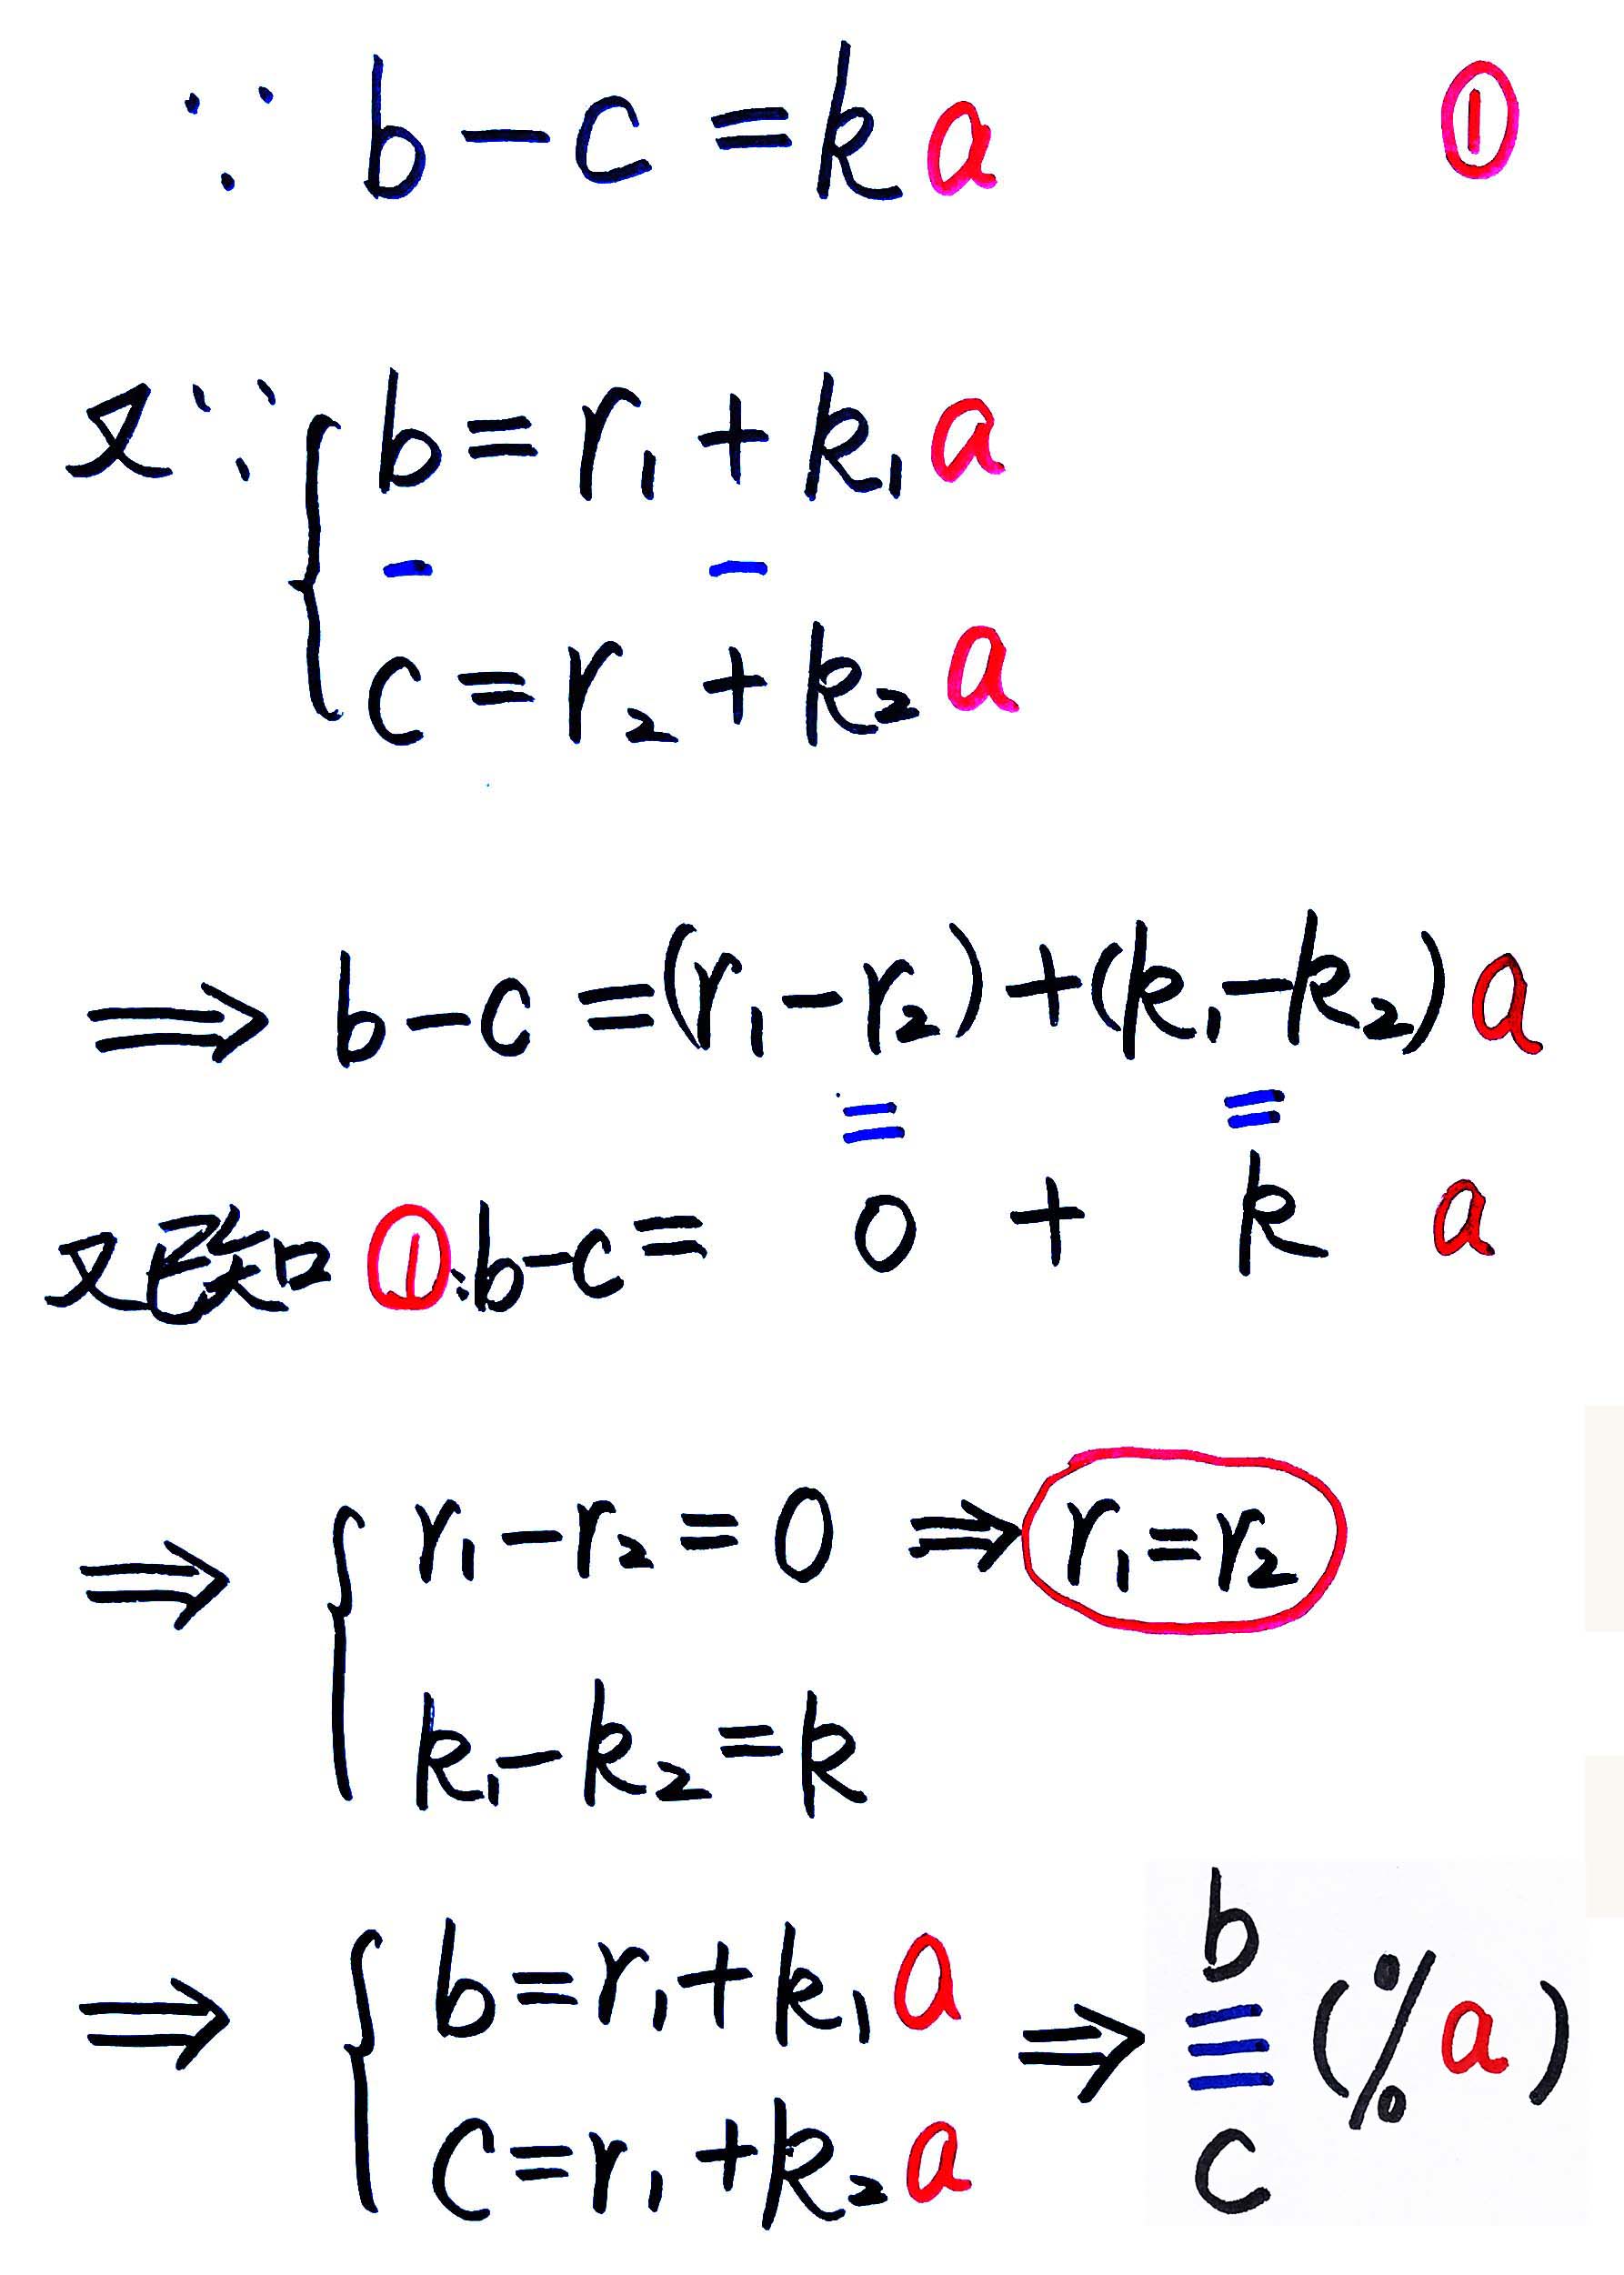 ∵ b-c=ka ①
又∵ b=r₁+k₁a
- -
c=r₂+k₂a
⇒ b-c=(r₁-r₂)+(k₁-k₂)a
= =
又已知①:b-c= 0 + k a
⇒ r₁-r₂=0 ⇒ r₁=r₂
k₁-k₂=k
⇒ b=r₁+k₁a ⇒ b
≡ (%a)
c=r₁+k₂a c